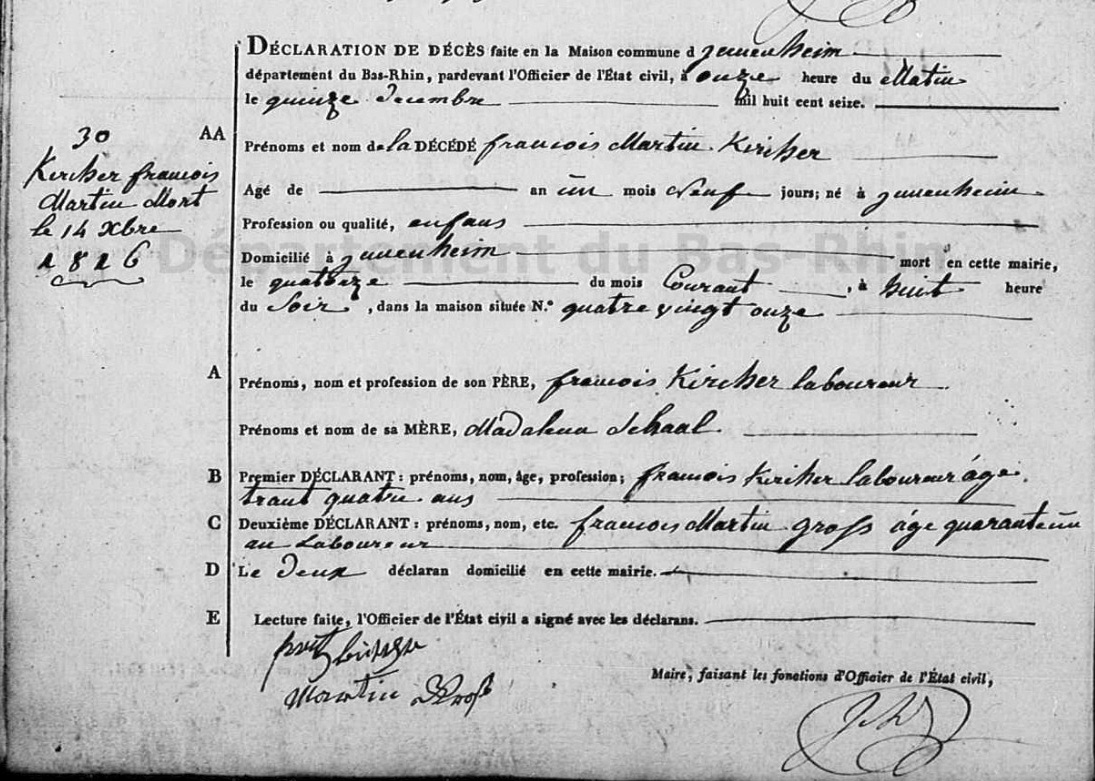 DÉCLARATION DE DÉCÈS faite en la Maison commune d
département du Bas-Rhin, pardevant l'Officier de l'État civil, à onze heure du Matin
le quinze decembre mil huit cent seize.
30
Kircher francois
Martin Mort
le 14 Xbre
1816
AA
Prénoms et nom de la DÉCÉDÉ francois Martin Kircher
Agé de an un mois neuf jours; né à
Profession ou qualité, enfans
Domicilié à mort en cette mairie,
le quatorze du mois Courant, à huit heure
du Soir, dans la maison située N.° quatre vingt onze
Département du Bas-Rhin
A
Prénoms, nom et profession de son PÈRE, francois Kircher laboureur
Prénoms et nom de sa MÈRE, Madalena Schaal
B
Premier DÉCLARANT: prénoms, nom, âge, profession; francois Kircher laboureur âge
trant quatre ans
C
Deuxième DÉCLARANT: prénoms, nom, etc. francois Martin groß âge quarante un
an Laboureur
D
Le deux déclaran domicilié en cette mairie.
E
Lecture faite, l'Officier de l'État civil a signé avec les déclarans.
Martin
Maire, faisant les fonctions d'Officier de l'État civil,